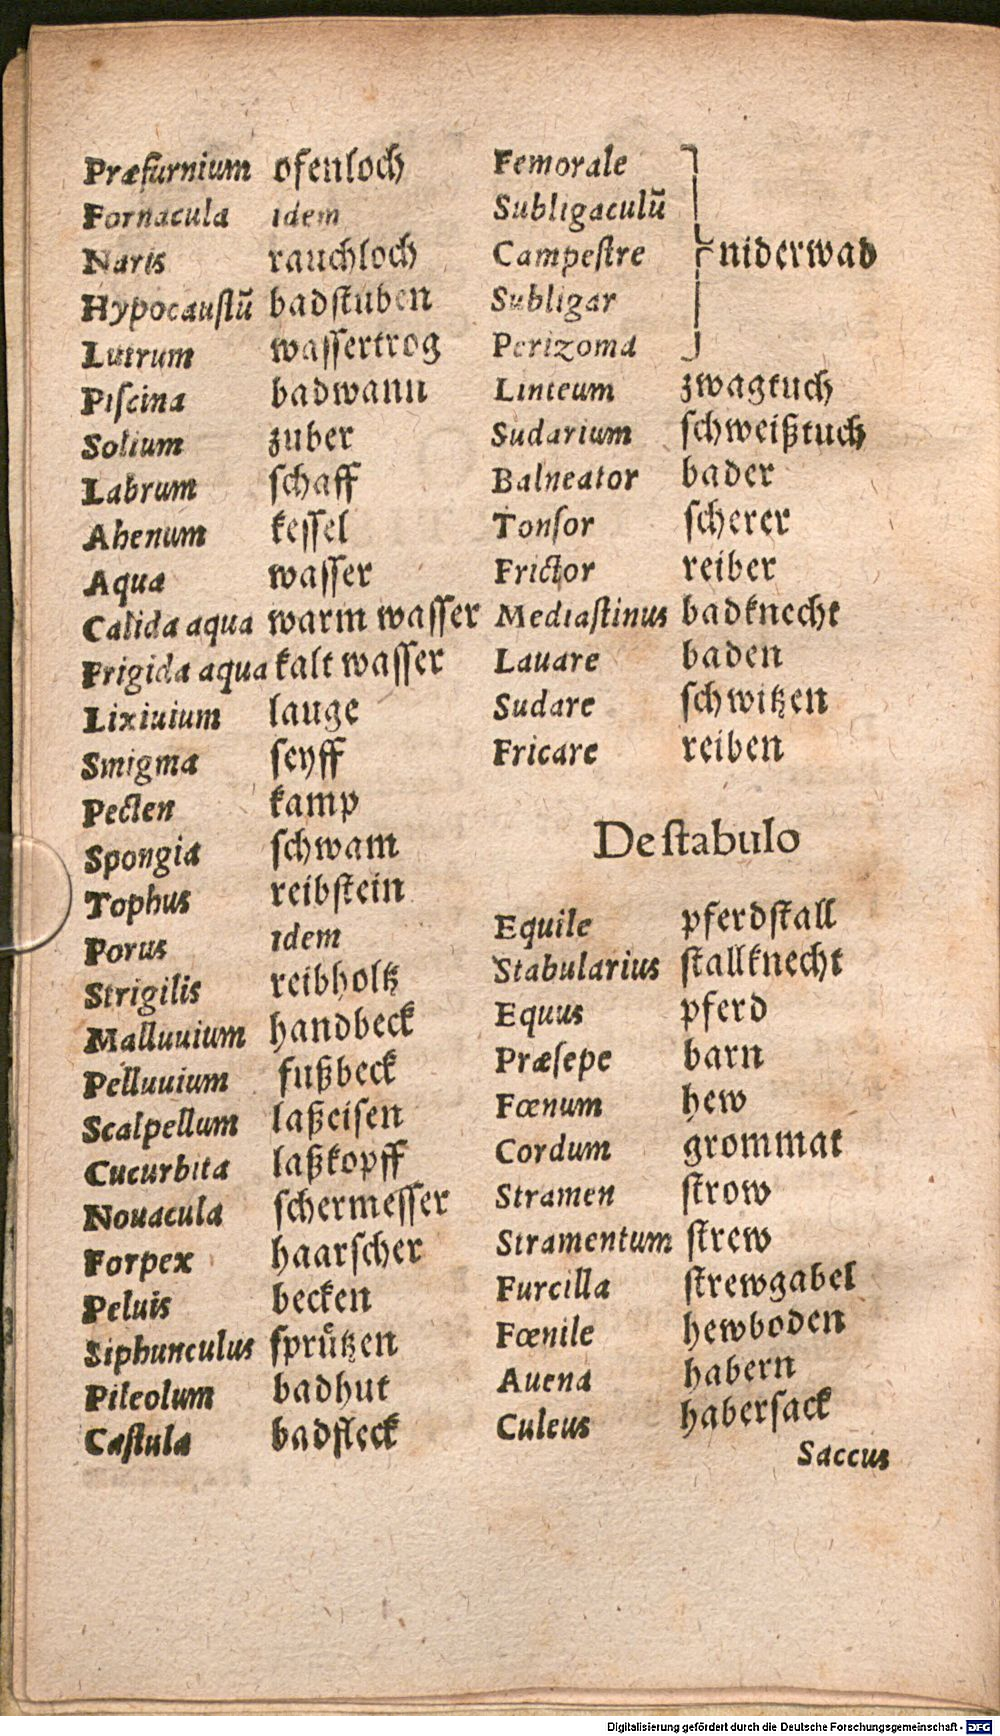 Præfurnium ofenloch
Fornacula idem
Naris rauchloch
Hypocauſtũ badſtuben
Lutrum waſſertrog
Piſcina badwann
Solium zuber
Labrum ſchaff
Ahenum keſſel
Aqua waſſer
Calida aqua warm waſſer
Frigida aqua kalt waſſer
Lixiuium lauge
Smigma ſeyff
Pecten kamp
Spongia ſchwam
Tophus reibſtein
Porus idem
Strigilis reibholtz
Malluuium handbeck
Pelluuium fußbeck
Scalpellum laßeiſen
Cucurbita laßkopff
Nouacula ſchermeſſer
Forpex haarſcher
Peluis becken
Siphunculus ſprůtzen
Pileolum badhut
Caſtula badfleck
Femorale
Subligaculũ
Campeſtre niderwad
Subligar
Perizoma
Linteum zwagtuch
Sudarium ſchweißtuch
Balneator bader
Tonſor ſcherer
Frictor reiber
Mediaſtinus badknecht
Lauare baden
Sudare ſchwitzen
Fricare reiben
De ſtabulo
Equile pferdſtall
Stabularius ſtallknecht
Equus pferd
Præſepe barn
Fœnum hew
Cordum grommat
Stramen ſtrow
Stramentum ſtrew
Furcilla ſtrewgabel
Fœnile hewboden
Auena habern
Culeus haberſack
Saccus
Digitalisierung gefördert durch die Deutsche Forschungsgemeinschaft - DFG